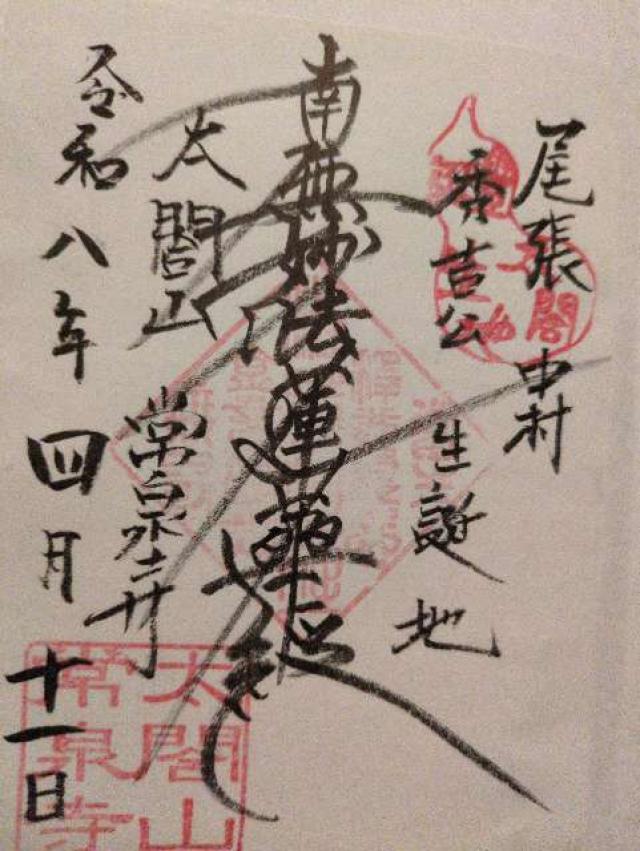 尾張中村
秀吉公生誕地
南無妙法蓮華経
太閤山
常泉寺
令和八年四月十一日
太閤山
常泉寺